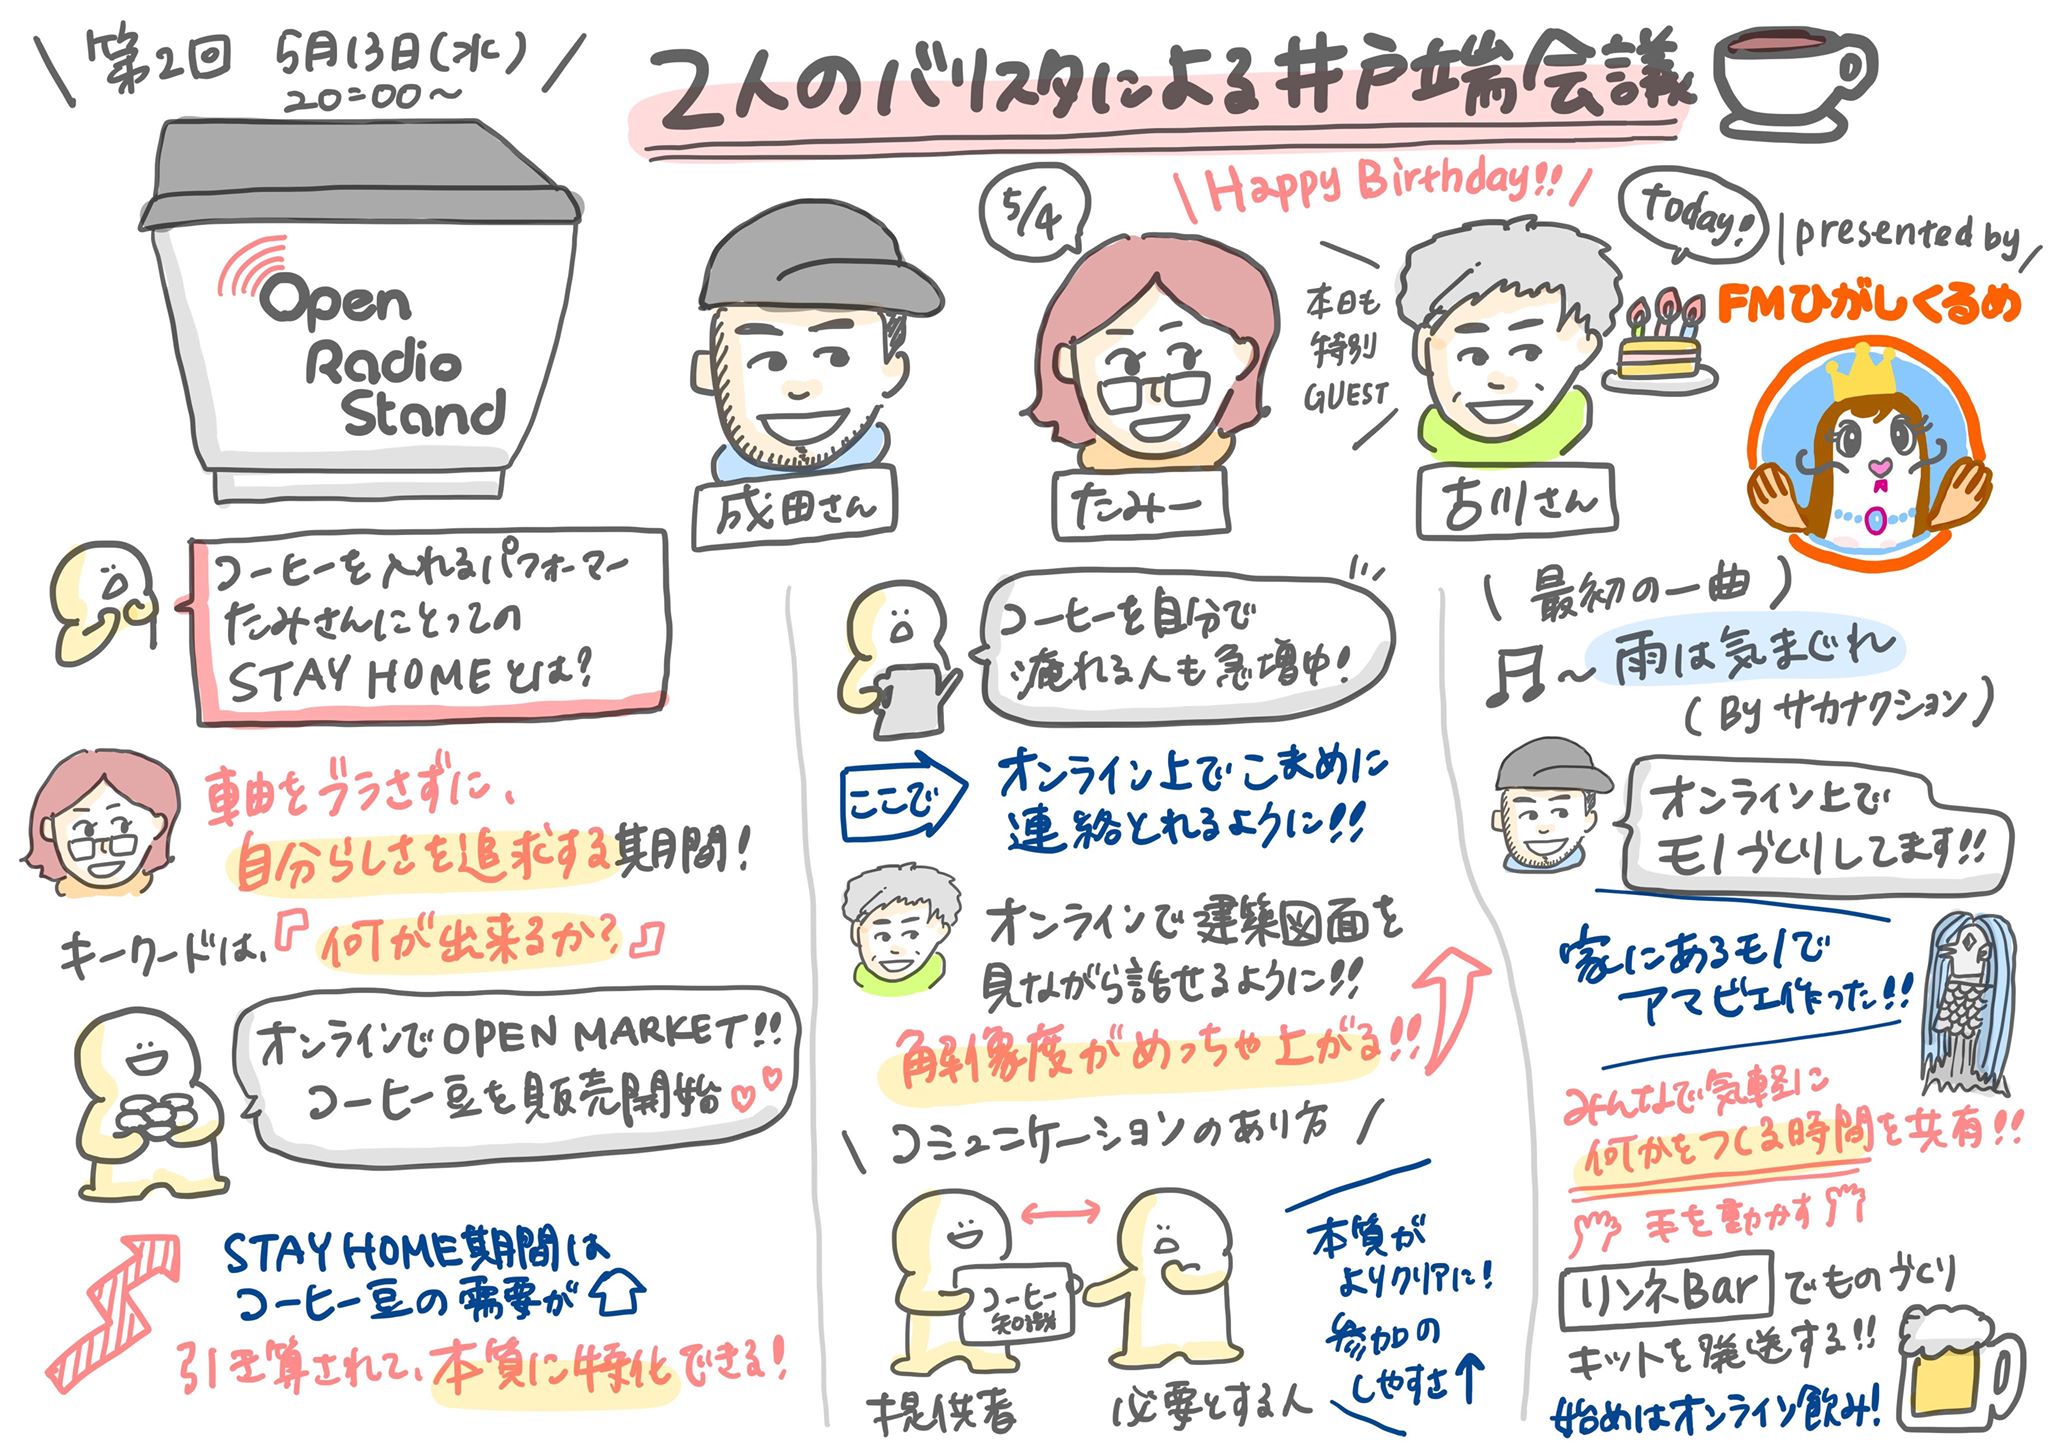 第2回 5月13日(水)
20:00〜
2人のバリスタによる井戸端会議
Open
Radio
Stand
5/4
Happy Birthday!!
Today!
presented by
FMひがしくるめ
本日も
特別
GUEST
成田さん
たみー
古川さん
コーヒーを入れるパフォーマー
たみさんにとっての
STAY HOMEとは?
軸をブラさずに、
自分らしさを追求する期間!
キーワードは、『何が出来るか?』
オンラインでOPEN MARKET!!
コーヒー豆を販売開始
STAY HOME期間は
コーヒー豆の需要が
引き算されて、本質に特化できる!
コーヒーを自分で
淹れる人も急増中!
ここで
オンライン上でこまめに
連絡とれるように!!
オンラインで建築図面を
見ながら話せるように!!
解像度がめっちゃ上がる!!
コミュニケーションのあり方
コーヒー
知識
提供者
必要とする人
本質が
よりクリアに!
参加の
しやすさ↑
最初の一曲
〜雨は気まぐれ
(By サカナクション)
オンライン上で
モノづくりしてます!!
家にあるモノで
アマビエ作った!!
みんなで気軽に
何かをつくる時間を共有!!
手を動かす
リンネBarでものづくり
キットを発送する!!
始めはオンライン飲み!